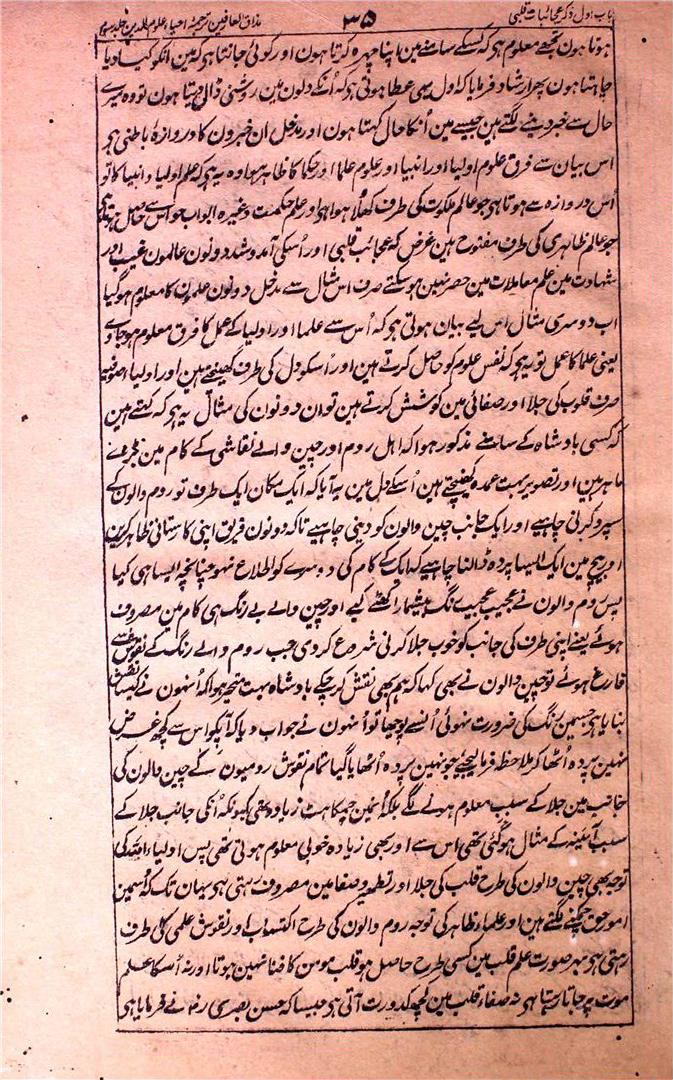 باب اول ذکر عجائبات قلبی ۳۵ مذاق العارفین ترجمۂ احیاء علوم الدین جلد سوم
ہوتا ہون تجھے معلوم ہو کہ کسکے سامنے مین اپنا چہرہ کرتا ہون اور کوئی جانتا ہو کہ مین انکو کیا دیا
چاہتا ہون پھر ارشاد فرمایا کہ اول یہی عطا ہوتی ہو کہ اُنکے دلون مین روشنی ڈال دیتا ہون تو وہ میرے
حال سے خبر دینے لگتے ہین جیسے مین اُنکا حال کہتا ہون اور مدخل ان خبرون کا دروازۂ باطنی ہو
اس بیان سے فرق علوم اولیا اور انبیا اور علوم علما اور حکما کا ظاہر ہوا وہ یہ ہو کہ علم اولیا و انبیا کا تو
اُس دروازہ سے ہوتا ہو جو عالم ملکوت کی طرف کھلا ہوا ہو اور علم حکمت وغیرہ ابواب حواس سے حاصل ہوتا ہو
جو عالم ظاہری کی طرف مفتوح ہین غرض کہ عجائب قلبی اور اُسکی آمد و شد دونون عالمون غیب اور
شہادت مین علم معاملات مین حصر نہین ہو سکتے صرف اس مثال سے مدخل دونون علمون کا معلوم ہو گیا
اب دوسری مثال اس لیے بیان ہوتی ہو کہ اُس سے علما اور اولیا کے عمل کا فرق معلوم ہو جاوے
یعنی علما کا عمل تو یہ ہو کہ نفس علوم کو حاصل کرتے ہین اور اُسکو دل کی طرف کھینچتے ہین اور اولیا اصوفیہ
صرف قلوب کی جلا اور صفائی مین کوشش کرتے ہین تو ان دونون کی مثال یہ ہو کہ کہتے ہین
کہ کسی بادشاہ کے سامنے مذکور ہوا کہ اہل روم اور چین والے نقاشی کے کام مین بڑے
ماہر ہین اور تصویر بہت عمدہ کھینچتے ہین اُسکے دل مین یہ آیا کہ ایک مکان ایک طرف تو روم والون کے
سپرد کرنی چاہیے اور ایک جانب چین والون کو دینی چاہیے تاکہ دونون فریق اپنی کارستانی ظاہر کرین
اور بیچ مین ایک ایسا پردہ ڈالنا چاہیے کہ ایک کے کام کی دوسرے کو اطلاع نہو چنانچہ ایسا ہی کیا
پس روم والون نے عجیب عجیب رنگ بیشمار اکٹھے کیے اور چین والے بے رنگ ہی کام مین مصروف
ہوئے یعنے اپنی طرف کی جانب کو خوب جلا کرنی شروع کردی جب روم والے رنگ کے نقوش سے
فارغ ہوئے تو چین والون نے بھی کہا کہ ہم بھی نقش کر چکے بادشاہ بہت متحیر ہوا کہ اُنہون نے کیسا نقش
بنایا ہو جسمین رنگ کی ضرورت نہوئی اُنسے پوچھا تو اُنہون نے جواب دیا کہ آپکو اس سے کچھ غرض
نہین پردہ اُٹھا کر ملاحظہ فرما لیجیے جونہین پردہ اُٹھایا گیا تمام نقوش رومیون کے چین والون کی
جانب مین جلا کے سبب معلوم ہونے لگے بلکہ اُنمین چمکاہٹ زیادہ تھی کیونکہ اُنکی جانب جلا کے
سبب آئینہ کے مثال ہو گئی تھی اس سے اور بھی زیادہ خوبی معلوم ہوتی تھی پس اولیاء اللہ کی
توجہ بھی چین والون کی طرح قلب کی جلا اور تطہیر و صفا مین مصروف رہتی ہو یہان تک کہ اُسمین
امور حق چمکنے لگتے ہین اور علماء ظاہر کی توجہ روم والون کی طرح اکتساب اور نقوش علمی کی طرف
رہتی ہو بہر صورت علم قلب مین کسی طرح حاصل ہو قلب مومن کا فنا نہین ہوتا اور نہ اُسکا علم
موت پر جاتا رہتا ہو نہ صفاء قلب مین کچھ کدورت آتی ہو جیسا کہ حسن بصری رض نے فرمایا ہو